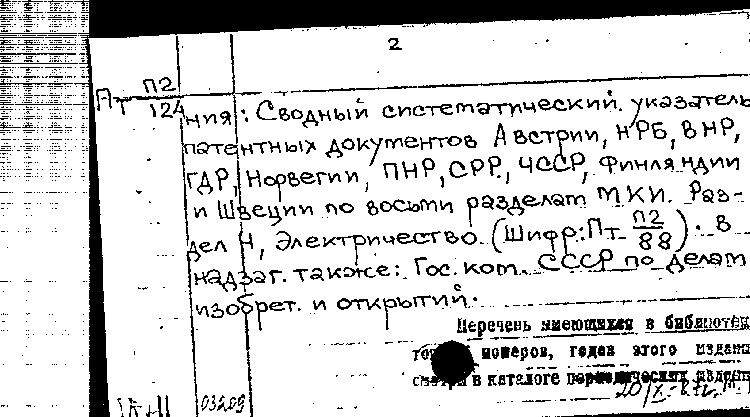 2
Пт П2
124
ния: Сводный систематический указатель
патентных документов Австрии, НРБ, ВНР,
ГДР, Норвегии, ПНР, СРР, ЧССР, Финляндии
и Швеции по восьми разделам МКИ. Раз-
дел H, Электричество. (Шифр: Пт П2/88). В
надзаг. также: Гос. ком. СССР по делам
изобрет. и открытий.
Перечень имеющихся в библиотек
номеров, годов этого издани
в каталоге периодических издани